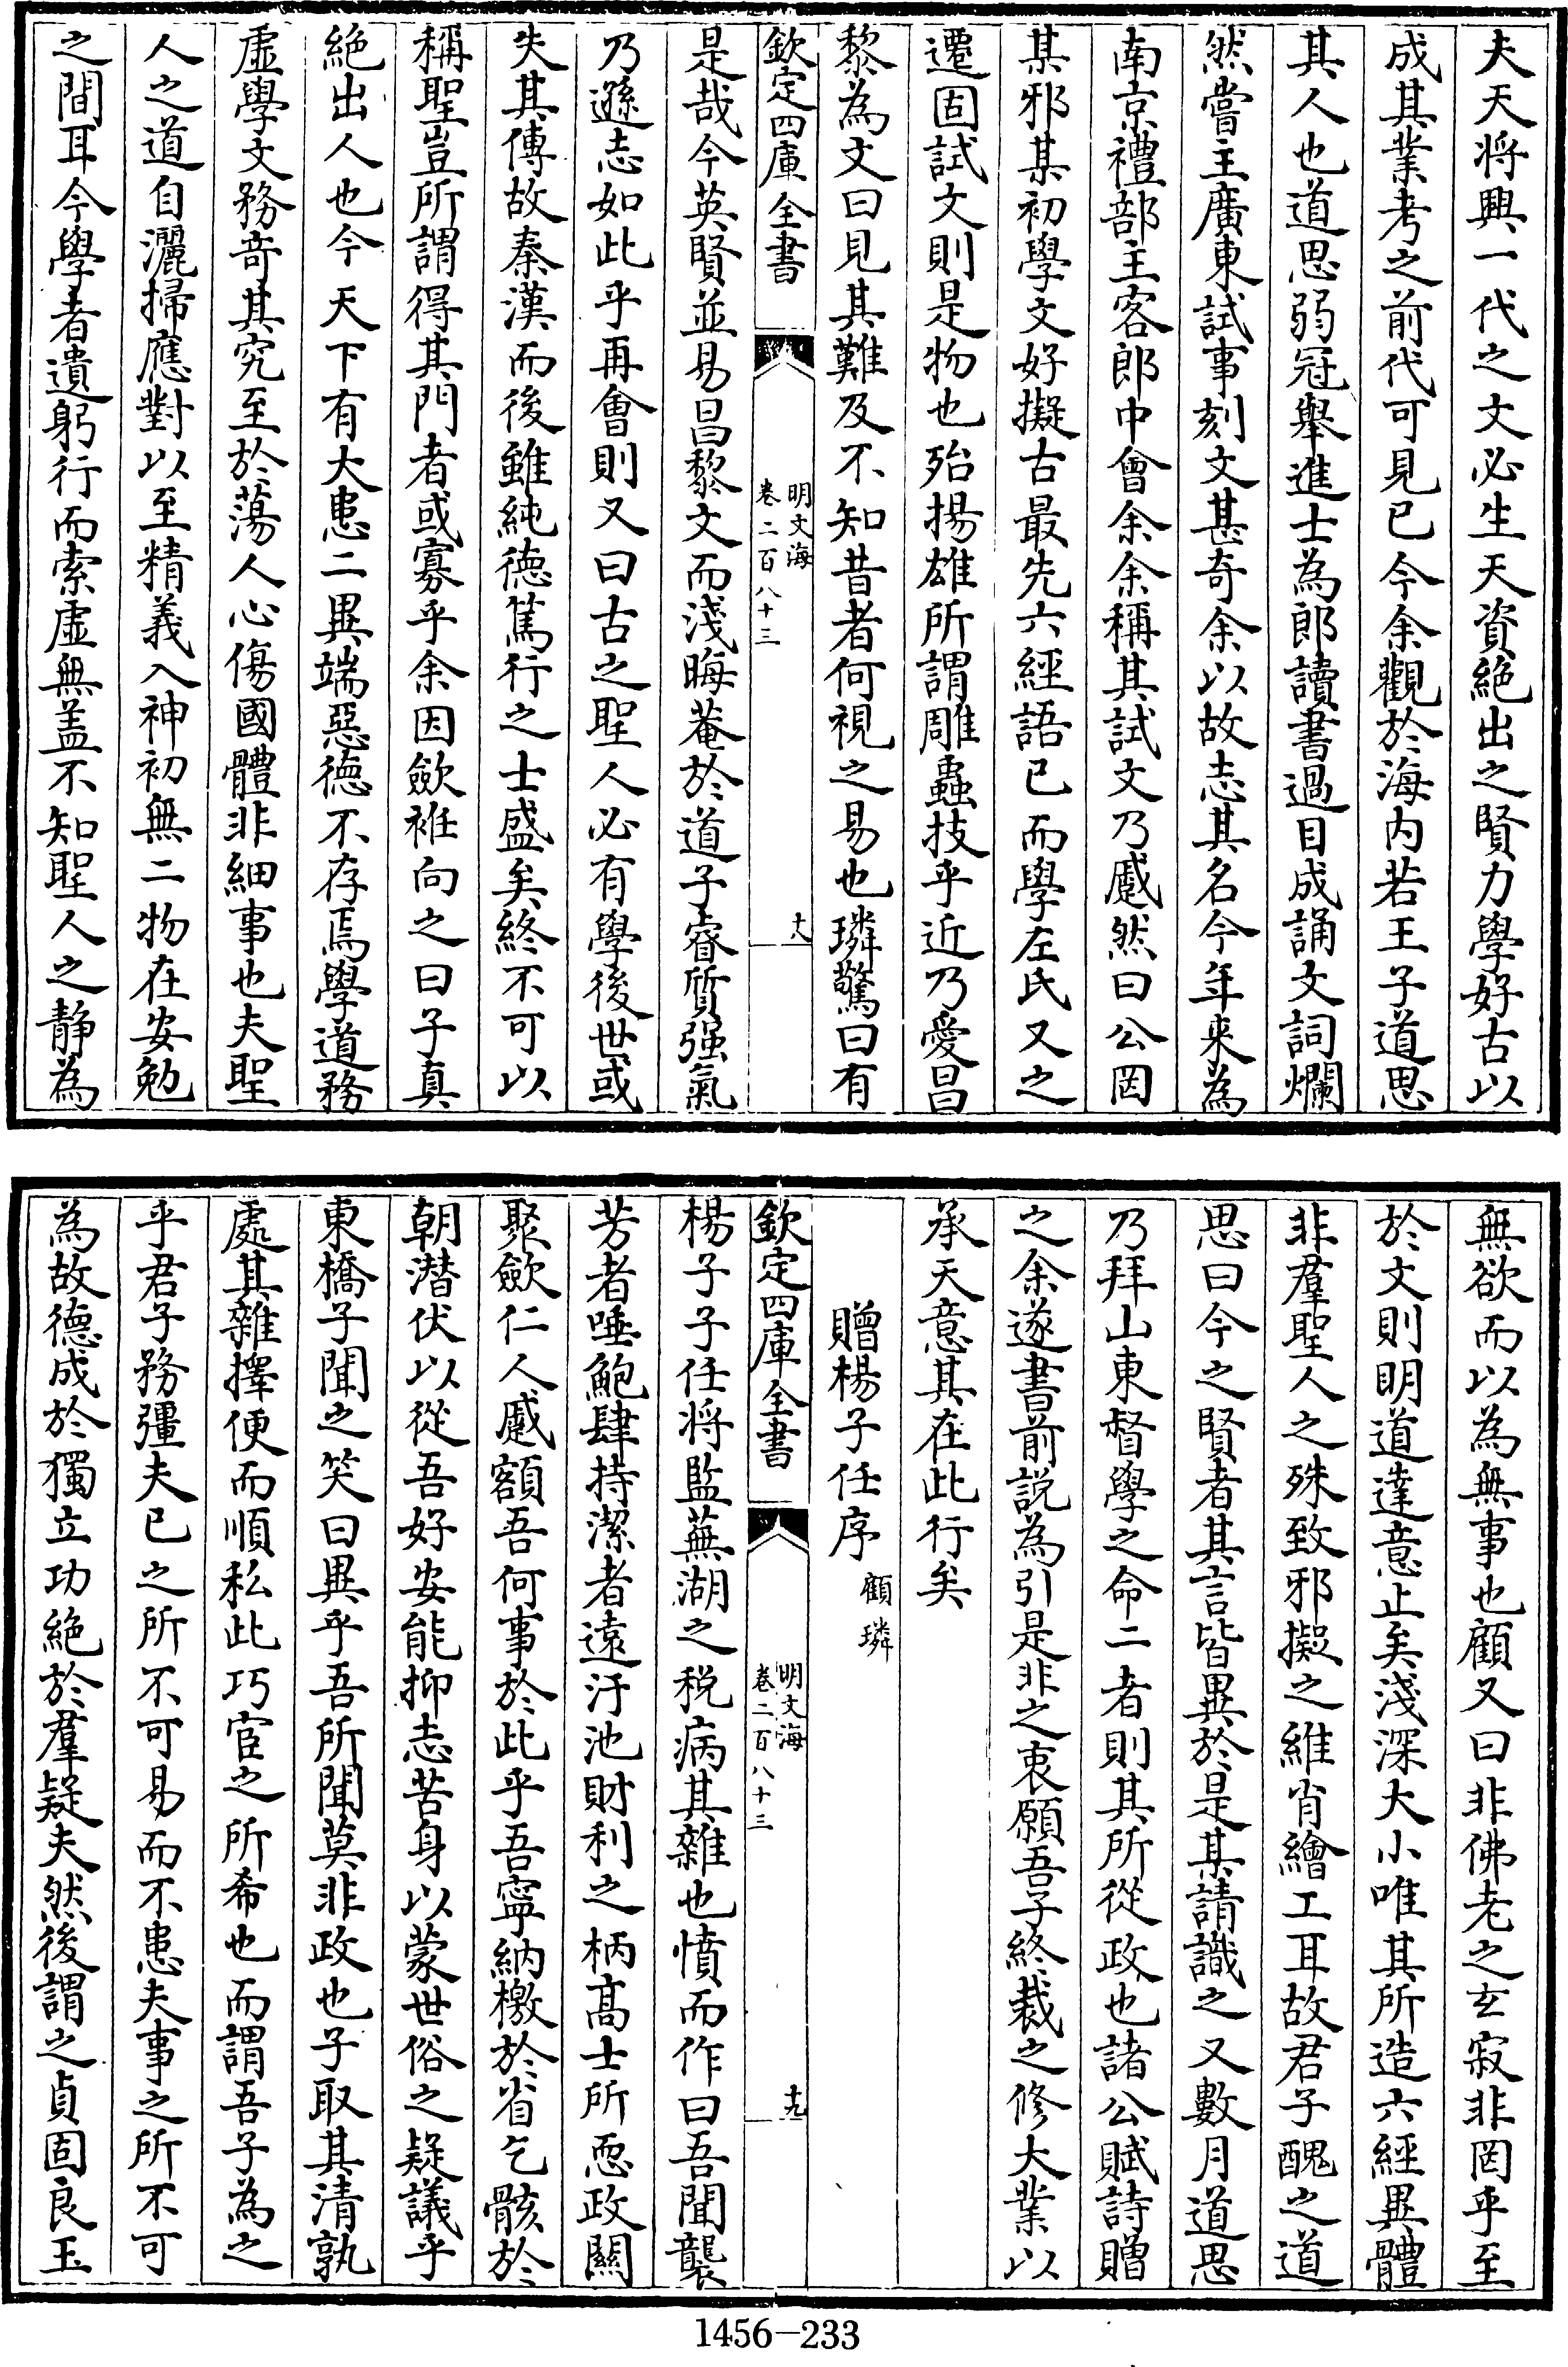 夫天將興一代之文必生天資絶出之賢力學好古以
成其業考之前代可見已今余觀於海内若王子道思
其人也道思弱冠舉進士為郎讀書過目成誦文詞爛
然嘗主廣東試事刻文甚奇余以故志其名今年来為
南京禮部主客郎中會余余稱其試文乃蹙然曰公罔
某邪某初學文好擬古最先六經語已而學左氏又之
遷固試文則是物也殆揚雄所謂雕蟲技乎近乃愛昌
黎為文曰見其難及不知昔者何視之易也璘驚曰有
欽定四庫全書
明文海
卷二百八十三
十八
是哉今英賢並易昌黎文而淺晦菴於道子睿質强氣
乃遜志如此乎再會則又曰古之聖人必有學後世或
失其傳故秦漢而後雖純德篤行之士盛矣終不可以
稱聖豈所謂得其門者或寡乎余因歛袵向之曰子真
絶出人也今天下有大患二異端惡德不存焉學道務
虛學文務奇其究至於蕩人心傷國體非細事也夫聖
人之道自灑掃應對以至精義入神初無二物在安勉
之間耳今學者遺躬行而索虛無盖不知聖人之静為
無欲而以為無事也顧又曰非佛老之玄寂非罔乎至
於文則明道達意止矣淺深大小唯其所造六經異體
非羣聖人之殊致邪擬之維肖繪工耳故君子醜之道
思曰今之賢者其言皆異於是某請識之又數月道思
乃拜山東督學之命二者則其所從政也諸公賦詩贈
之余遂書前説為引是非之衷願吾子終裁之修大業以
承天意其在此行矣
贈楊子任序
顧璘
欽定四庫全書
明文海
卷二百八十三
十九
楊子子任将監蕪湖之税病其雜也憤而作曰吾聞襲
芳者唾鮑肆持潔者遠汙池財利之柄髙士所恧政關
聚歛仁人蹙額吾何事於此乎吾寧納檄於省乞骸於
朝潜伏以從吾好安能抑志苦身以蒙世俗之疑議乎
東橋子聞之笑曰異乎吾所聞莫非政也子取其清孰
處其雜擇便而順私此巧宦之所希也而謂吾子為之
乎君子務彊夫已之所不可易而不患夫事之所不可
為故德成於獨立功絶於羣疑夫然後謂之貞固良玉
1456-233